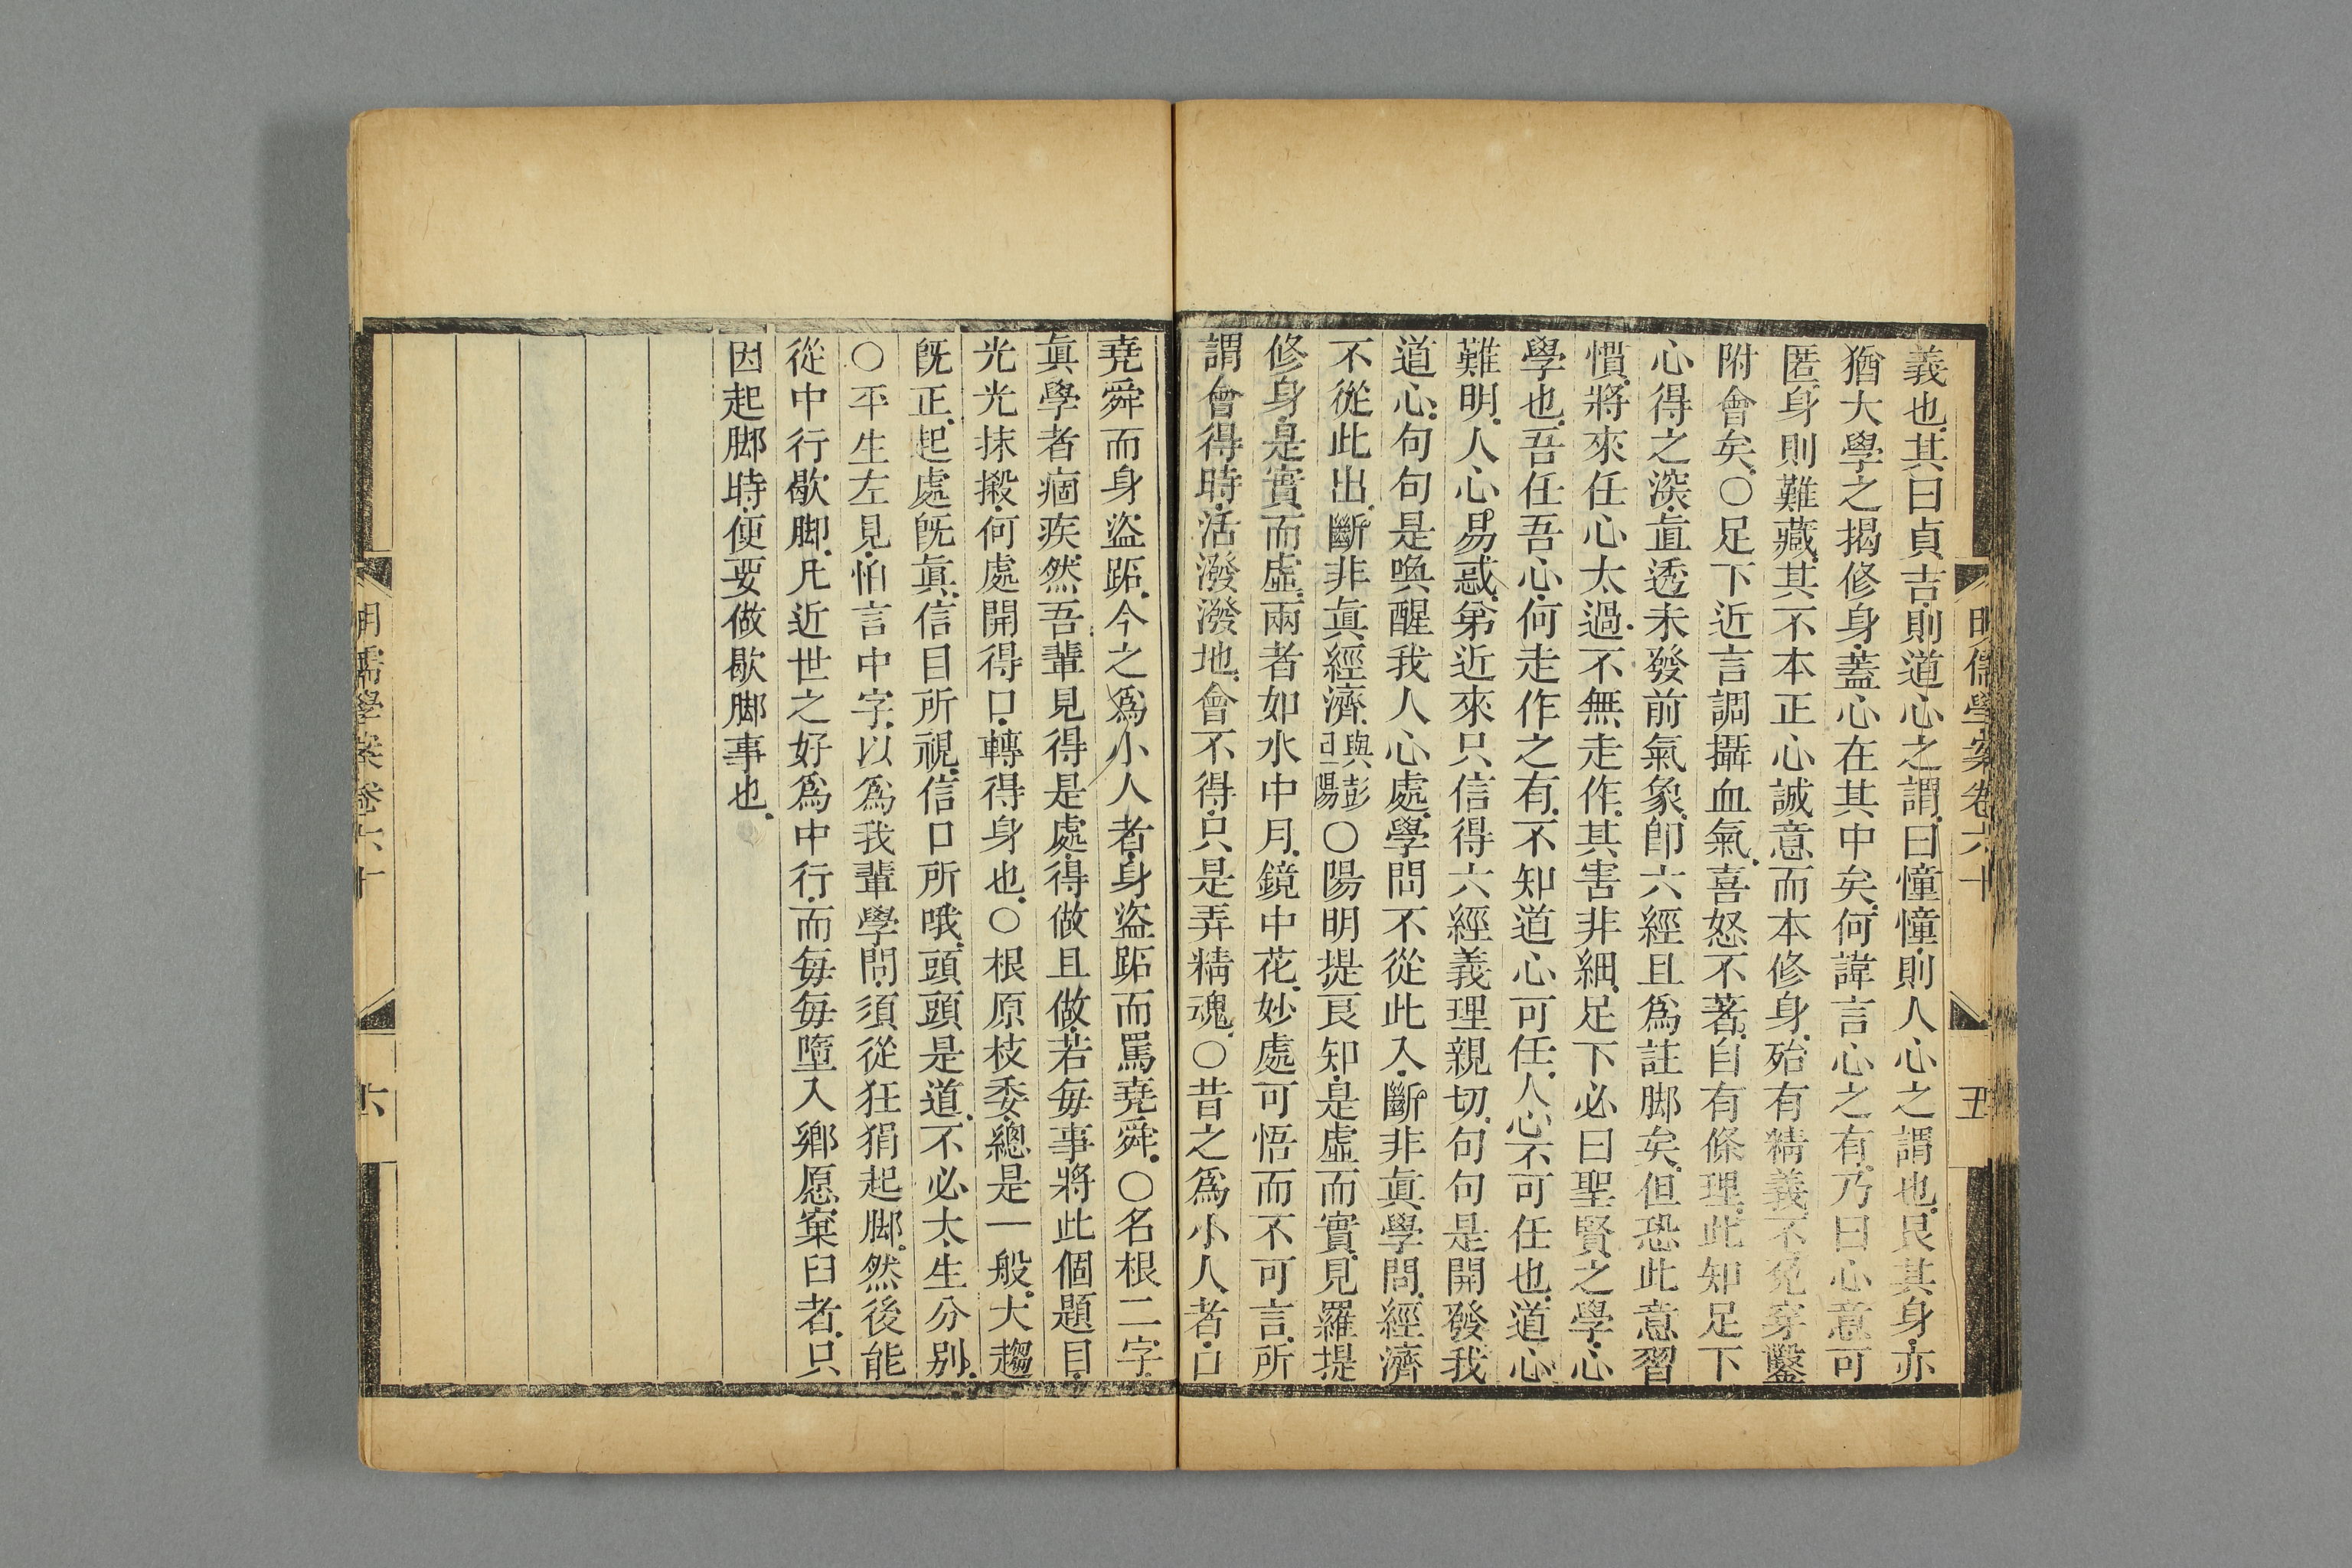 明儒學案卷六十
五
義也其曰貞吉則道心之謂曰憧憧則人心之謂也艮其身亦
猶大學之揭修身蓋心在其中矣何諱言心之有乃曰心意可
匿身則難藏其不本正心誠意而本修身殆有精義不免穿鑿
附會矣〇足下近言調攝血氣喜怒不著自有條理此知足下
心得之深直透未發前氣象卽六經且爲註脚矣但恐此意習
慣將來任心太過不無走作其害非細足下必曰聖賢之學心
學也吾任吾心何走作之有不知道心可任人心不可任也道心
難明人心易惑弟近來只信得六經義理親切句句是開發我
道心句句是喚醒我人心處學問不從此入斷非眞學問經濟
不從此出斷非眞經濟與彭旦陽〇陽明提良知是虛而實見羅提
修身是實而虛兩者如水中月鏡中花妙處可悟而不可言所
謂會得時活潑潑地會不得只是弄精魂〇昔之爲小人者口
堯舜而身盜跖今之爲小人者身盜跖而罵堯舜〇名根二字
眞學者痼疾然吾輩見得是處得做且做若每事將此個題目
光光抹摋何處開得口轉得身也〇根原枝委總是一般大趨
旣正起處旣眞信目所視信口所哦頭頭是道不必太生分別
〇平生左見怕言中字以爲我輩學問須從狂狷起脚然後能
從中行歇脚凡近世之好爲中行而每每墮入鄉愿窠臼者只
因起脚時便要做歇脚事也
明儒學案卷六十
六